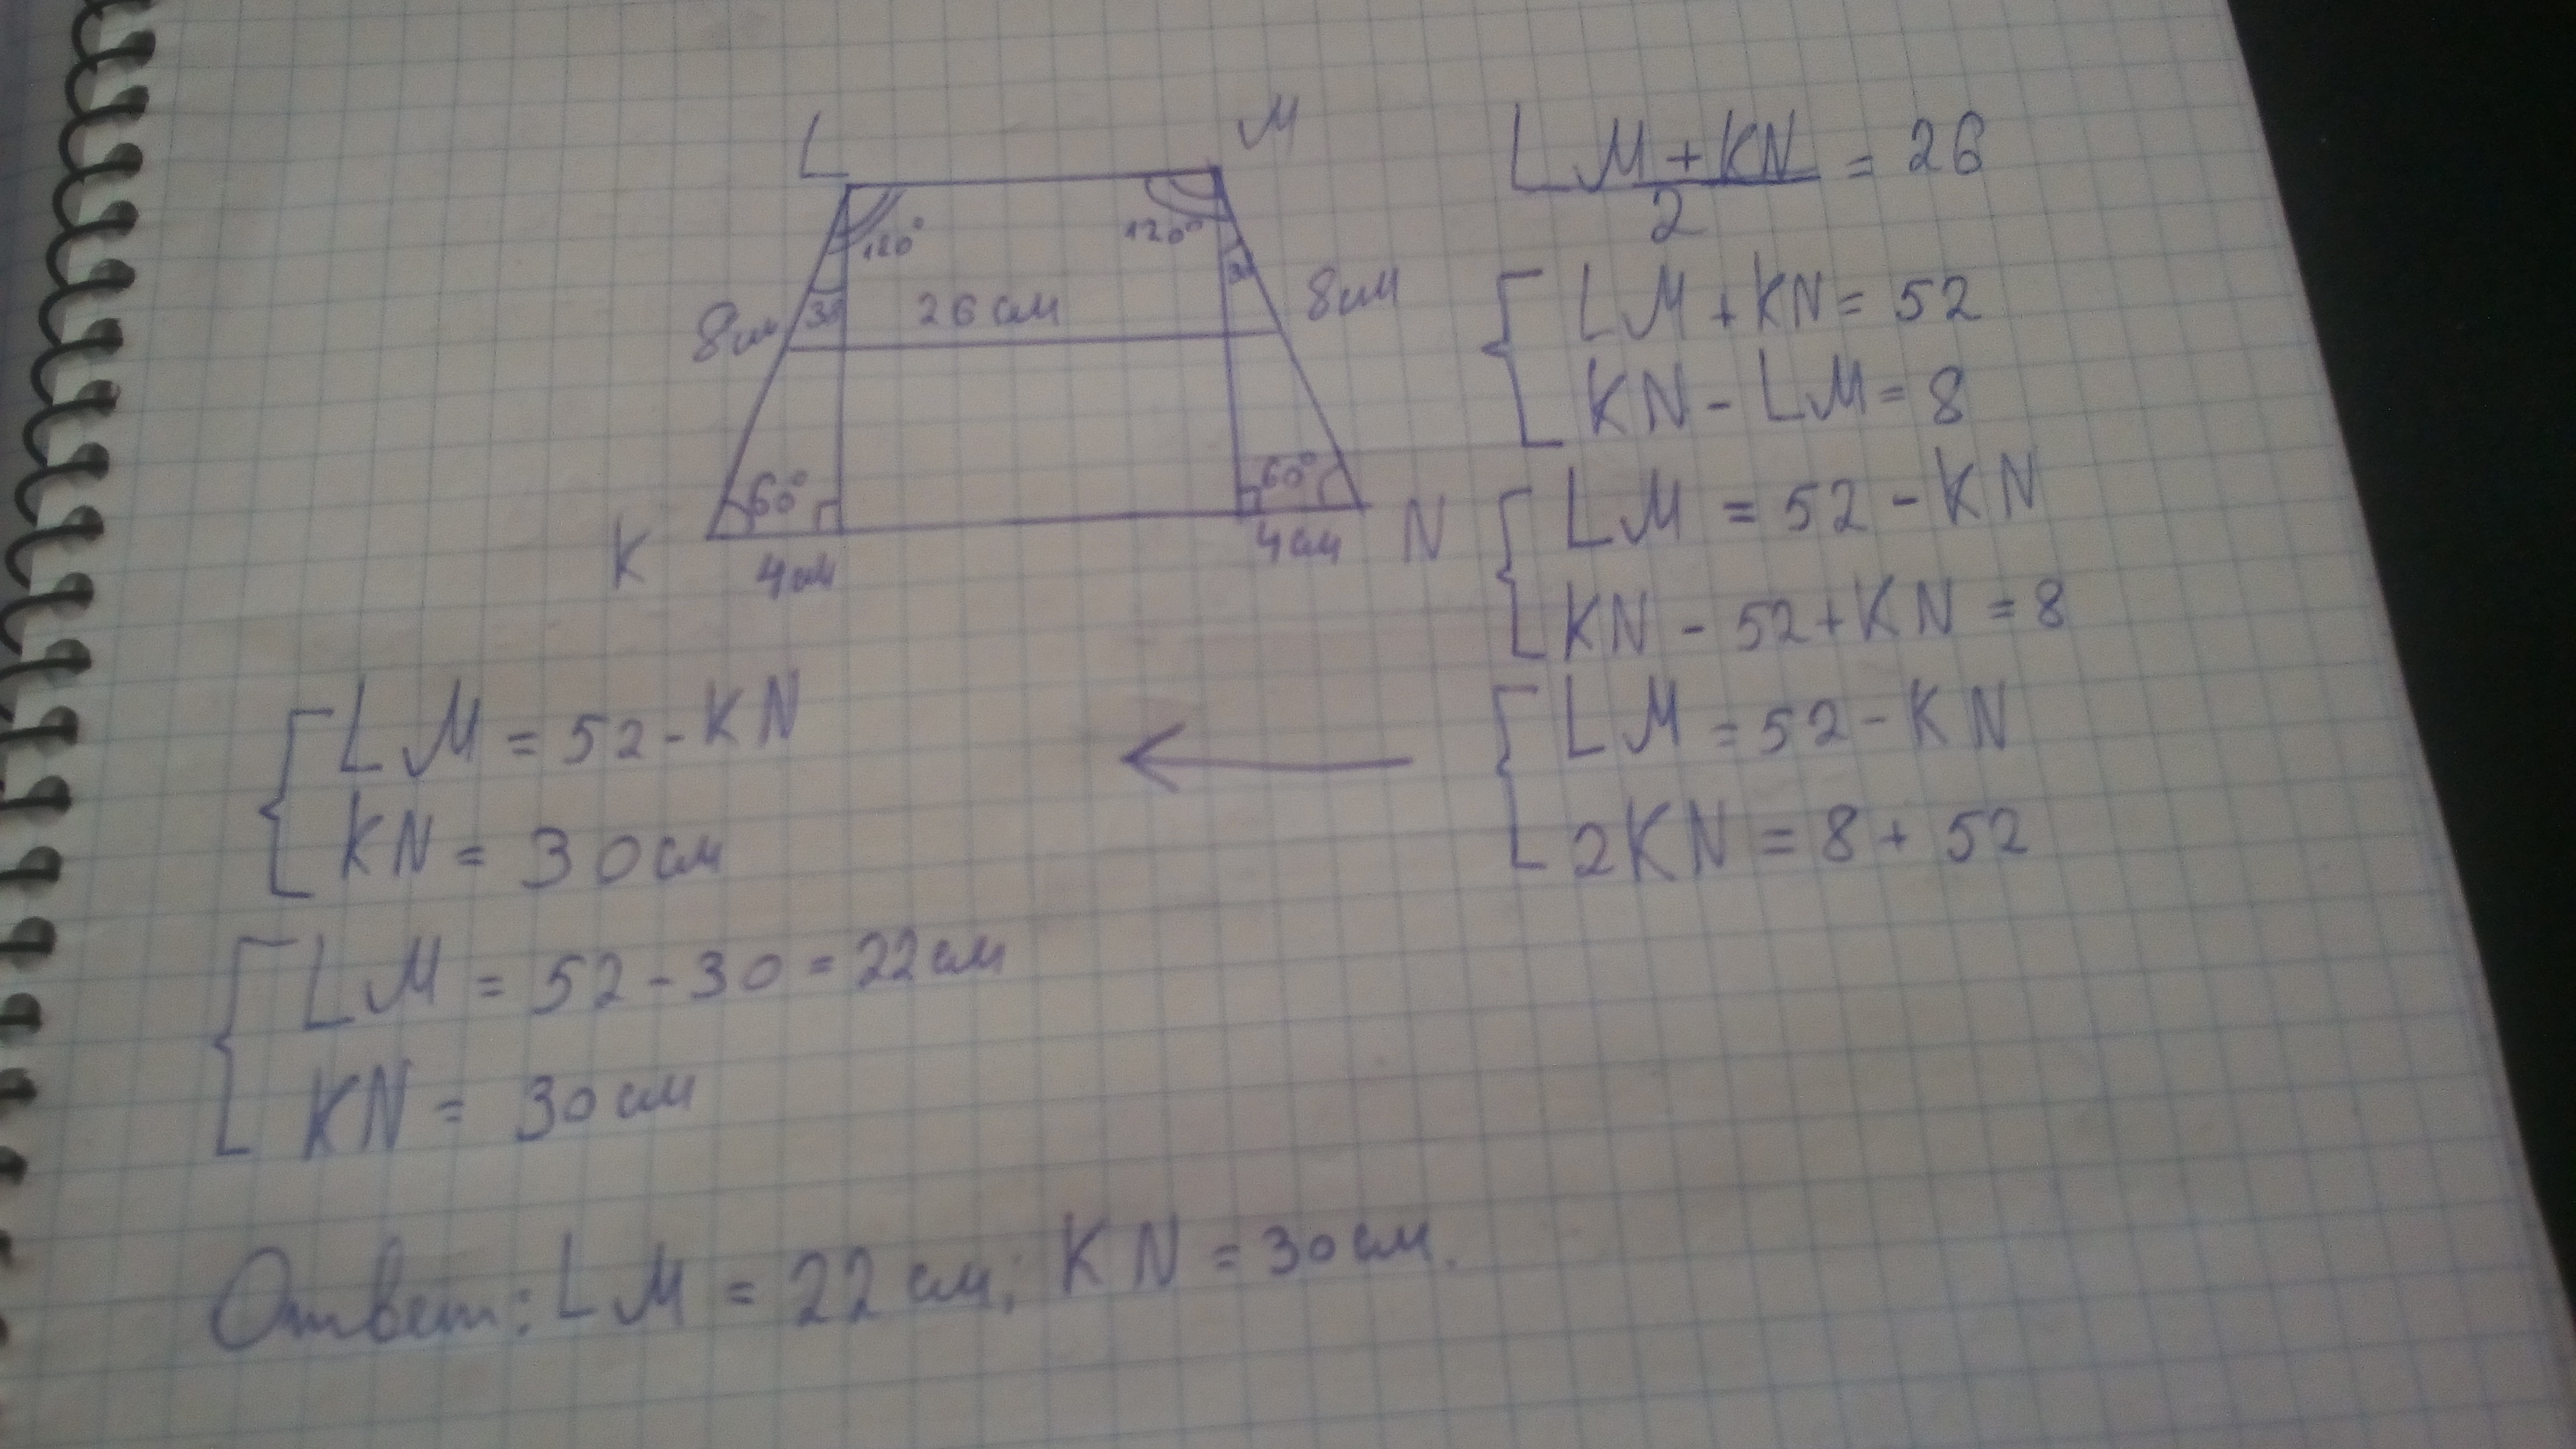 L M
120° 120°
30 3
8см 26 см 8см
60° 60°
K 4см 4см N
LM + KN = 26
2
LM + KN = 52
KN - LM = 8
LM = 52 - KN
KN - 52 + KN = 8
LM = 52 - KN
2KN = 8 + 52
LM = 52 - KN
KN = 30 см
LM = 52 - 30 = 22 см
KN = 30 см
Ответ: LM = 22 см; KN = 30 см.